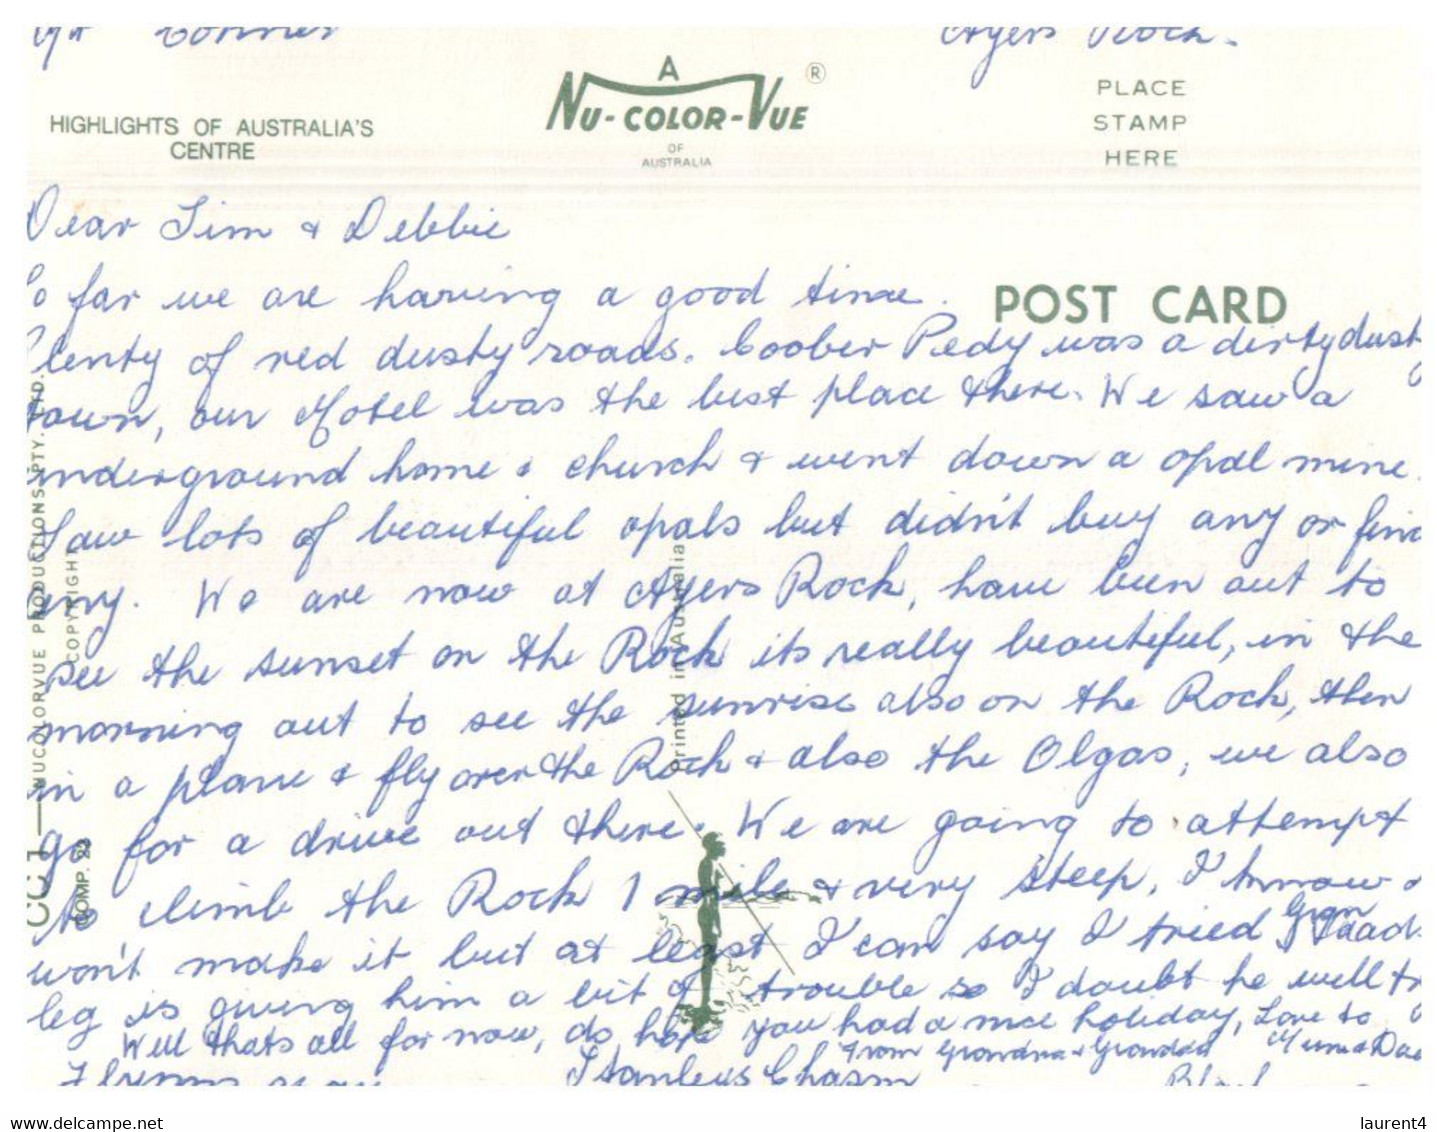 Ayers Rock.
A
NU-COLOR-VUE ®
OF
AUSTRALIA
HIGHLIGHTS OF AUSTRALIA'S
CENTRE
PLACE
STAMP
HERE
POST CARD
Dear Tim & Debbie
So far we are having a good time.
Plenty of red dusty roads. Coober Pedy was a dirty dusty
town, our Motel was the best place there. We saw a
underground home & church & went down a opal mine.
Saw lots of beautiful opals but didn't buy any or find
any. We are now at Ayers Rock, have been out to
see the sunset on the Rock its really beautiful, in the
morning out to see the sunrise also on the Rock, then
in a plane & fly over the Rock & also the Olgas, we also
go for a drive out there. We are going to attempt
to climb the Rock 1 mile & very steep, I know I
won't make it but at least I can say I tried Gran Dads
leg is giving him a bit of trouble so I doubt he will try
Well thats all for now, do hope you had a nice holiday, Love to
from Grandma & Grandad Mum & Dad
Stanleys Chasm
CC1 — NUCOLORVUE PRODUCTIONS PTY. LTD.
COMP. 23 COPYRIGHT
Printed in Australia
laurent4
www.delcampe.net